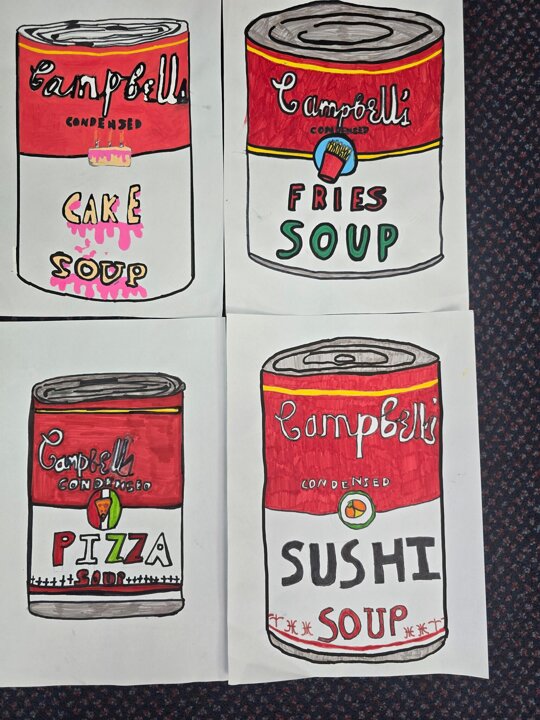 Campbell's
CONDENSED
CAKE
SOUP
Campbell's
CONDENSED
FRIES
SOUP
Campbells
CONDENSED
PIZZA
SOUP
Campbell's
CONDENSED
SUSHI
SOUP